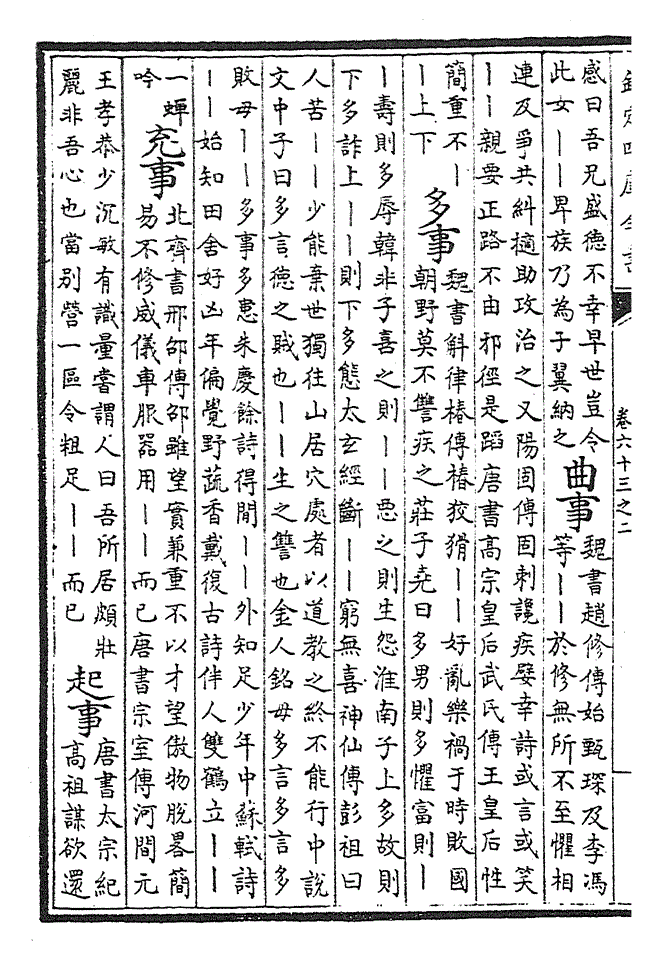 欽定四庫全書
卷六十三之二
感曰吾兄盛德不幸早世豈令
此女——畀族乃為子翼納之
曲事
魏書趙修傳始甄琛及李馮
等——於修無所不至懼相
連及爭共糾擿助攻治之又陽固傳固刺讒疾嬖幸詩或言或笑
——親要正路不由邪徑是蹈唐書高宗皇后武氏傳王皇后性
簡重不—
—上下
多事
魏書斛律椿傳椿狡猾——好亂樂禍于時敗國
朝野莫不讐疾之莊子堯曰多男則多懼富則—
—壽則多辱韓非子喜之則——惡之則生怨淮南子上多故則
下多詐上——則下多態太玄經斷——窮無喜神仙傳彭祖曰
人苦——少能棄世獨往山居穴處者以道教之終不能行中說
文中子曰多言德之賊也——生之讐也金人銘毋多言多言多
敗毋——多事多患朱慶餘詩得閒——外知足少年中蘇軾詩
——始知田舍好凶年偏覺野蔬香戴復古詩伴人雙鶴立——
一蟬
吟
充事
北齊書邢卲傳卲雖望實兼重不以才望傲物脫畧簡
易不修威儀車服器用——而已唐書宗室傳河間元
王孝恭少沉敏有識量嘗謂人曰吾所居頗壯
麗非吾心也當別營一區令粗足——而已
起事
唐書太宗紀
高祖謀欲還